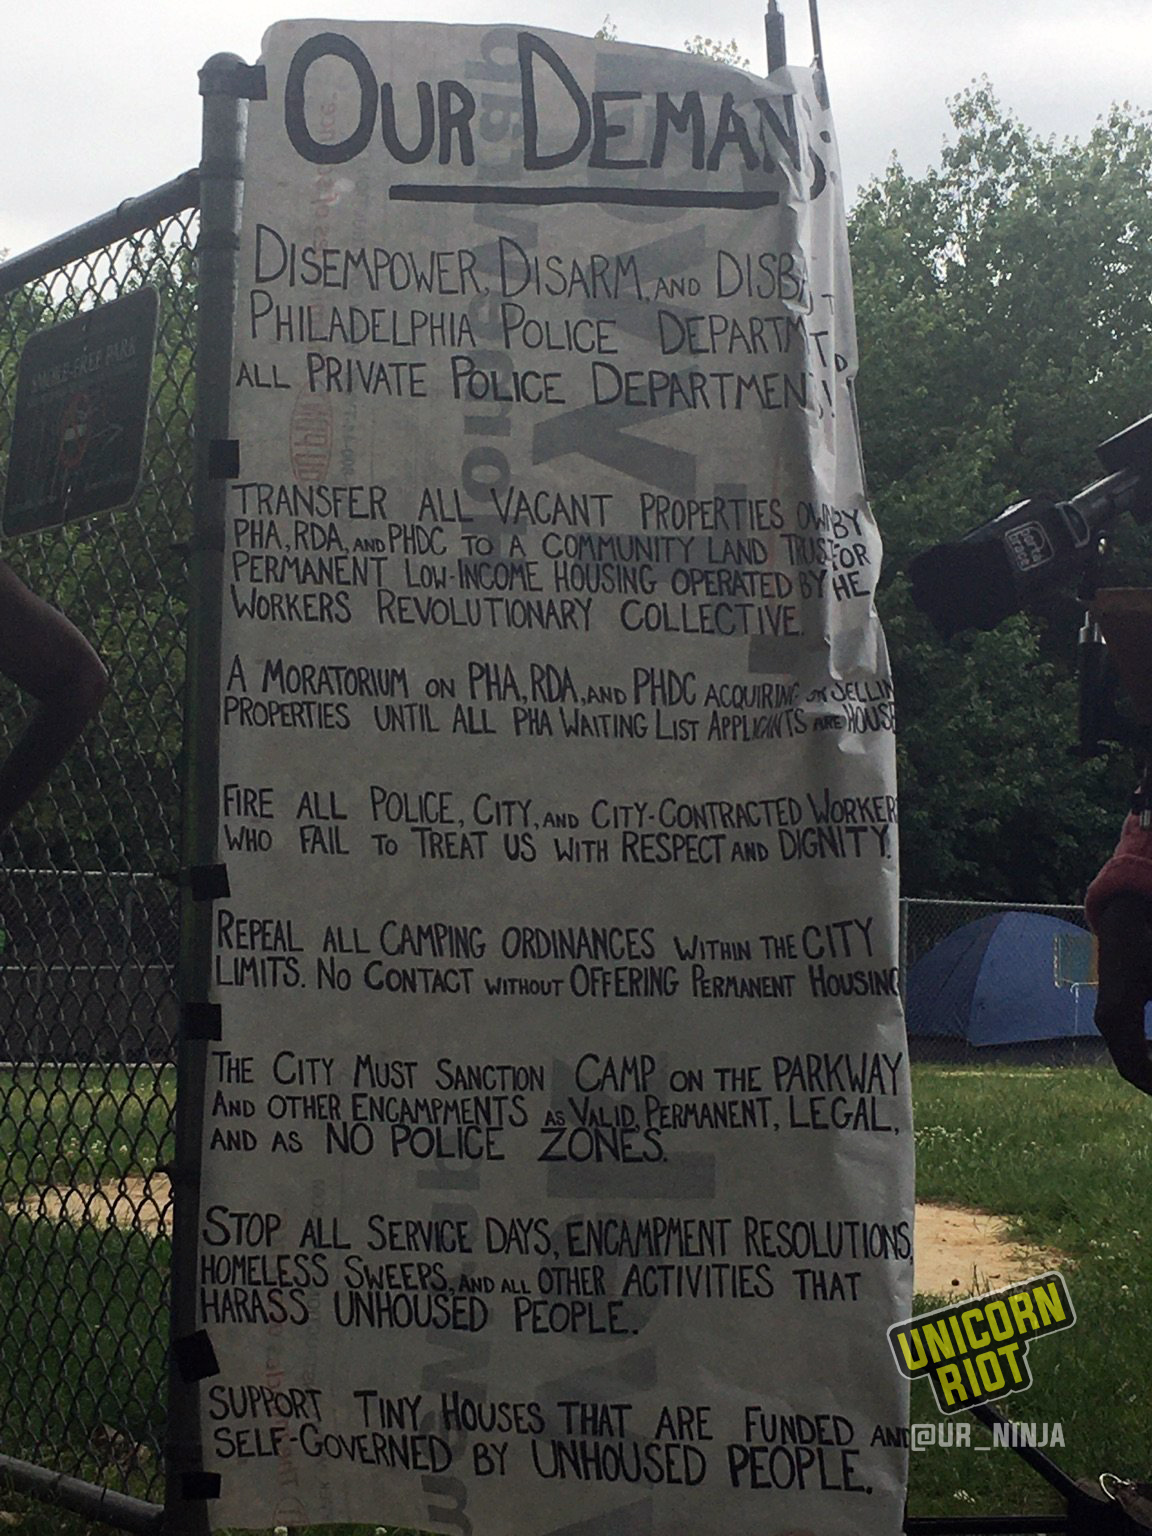 OUR DEMANDS:
DISEMPOWER, DISARM, AND DISB
PHILADELPHIA POLICE DEPARTM T
ALL PRIVATE POLICE DEPARTMEN S!
TRANSFER ALL VACANT PROPERTIES OWN BY
PHA, RDA, AND PHDC TO A COMMUNITY LAND TRUST FOR
PERMANENT LOW-INCOME HOUSING OPERATED BY HE
WORKERS REVOLUTIONARY COLLECTIVE.
A MORATORIUM ON PHA, RDA, AND PHDC ACQUIRING OR SELLIN
PROPERTIES UNTIL ALL PHA WAITING LIST APPLICANTS ARE HOUSE
FIRE ALL POLICE, CITY, AND CITY-CONTRACTED WORKER
WHO FAIL TO TREAT US WITH RESPECT AND DIGNITY.
REPEAL ALL CAMPING ORDINANCES WITHIN THE CITY
LIMITS. NO CONTACT WITHOUT OFFERING PERMANENT HOUSING
THE CITY MUST SANCTION CAMP ON THE PARKWAY
AND OTHER ENCAMPMENTS AS VALID, PERMANENT, LEGAL,
AND AS NO POLICE ZONES.
STOP ALL SERVICE DAYS, ENCAMPMENT RESOLUTIONS,
HOMELESS SWEEPS, AND ALL OTHER ACTIVITIES THAT
HARASS UNHOUSED PEOPLE.
SUPPORT TINY HOUSES THAT ARE FUNDED AND
SELF-GOVERNED BY UNHOUSED PEOPLE.
SMOKE-FREE PARK
UNICORN
RIOT
@UR_NINJA